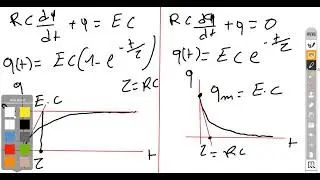 RC dq/dt + q = EC
q(t) = EC(1 - e^-t/2)
2 = RC
q
E.C
2
t
RC dq/dt + q = 0
q(t) = EC e^-t/2
q
qm = E.C
2 = RC
t